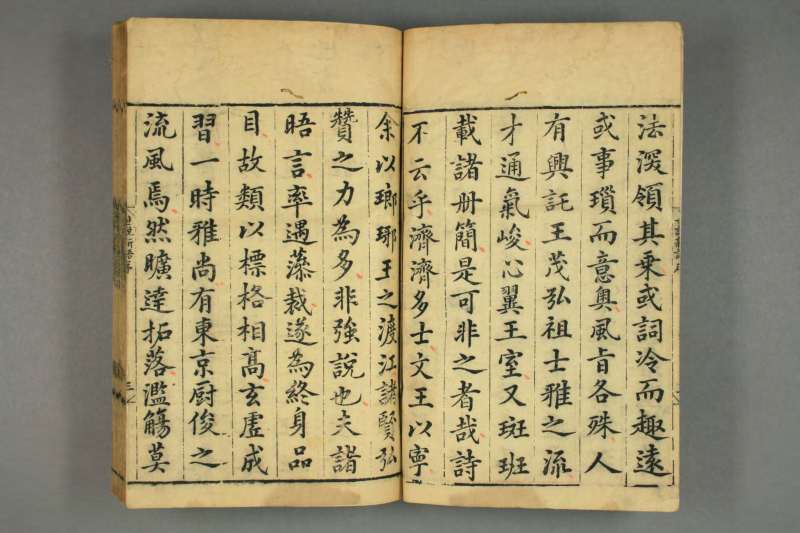 法深領其乗或詞冷而趣遠
或事瑣而意奧風旨各殊人
有興託王茂弘祖士雅之流
才通氣峻心翼王室又斑斑
載諸册簡是可非之者哉詩
不云乎濟濟多士文王以寧
余以瑯琊王之渡江諸賢弘
贊之力為多非強說也夫諸
晤言率遇藻裁遂為終身品
目故類以標格相高玄虛成
習一時雅尚有東京厨俊之
流風焉然曠達拓落濫觴莫